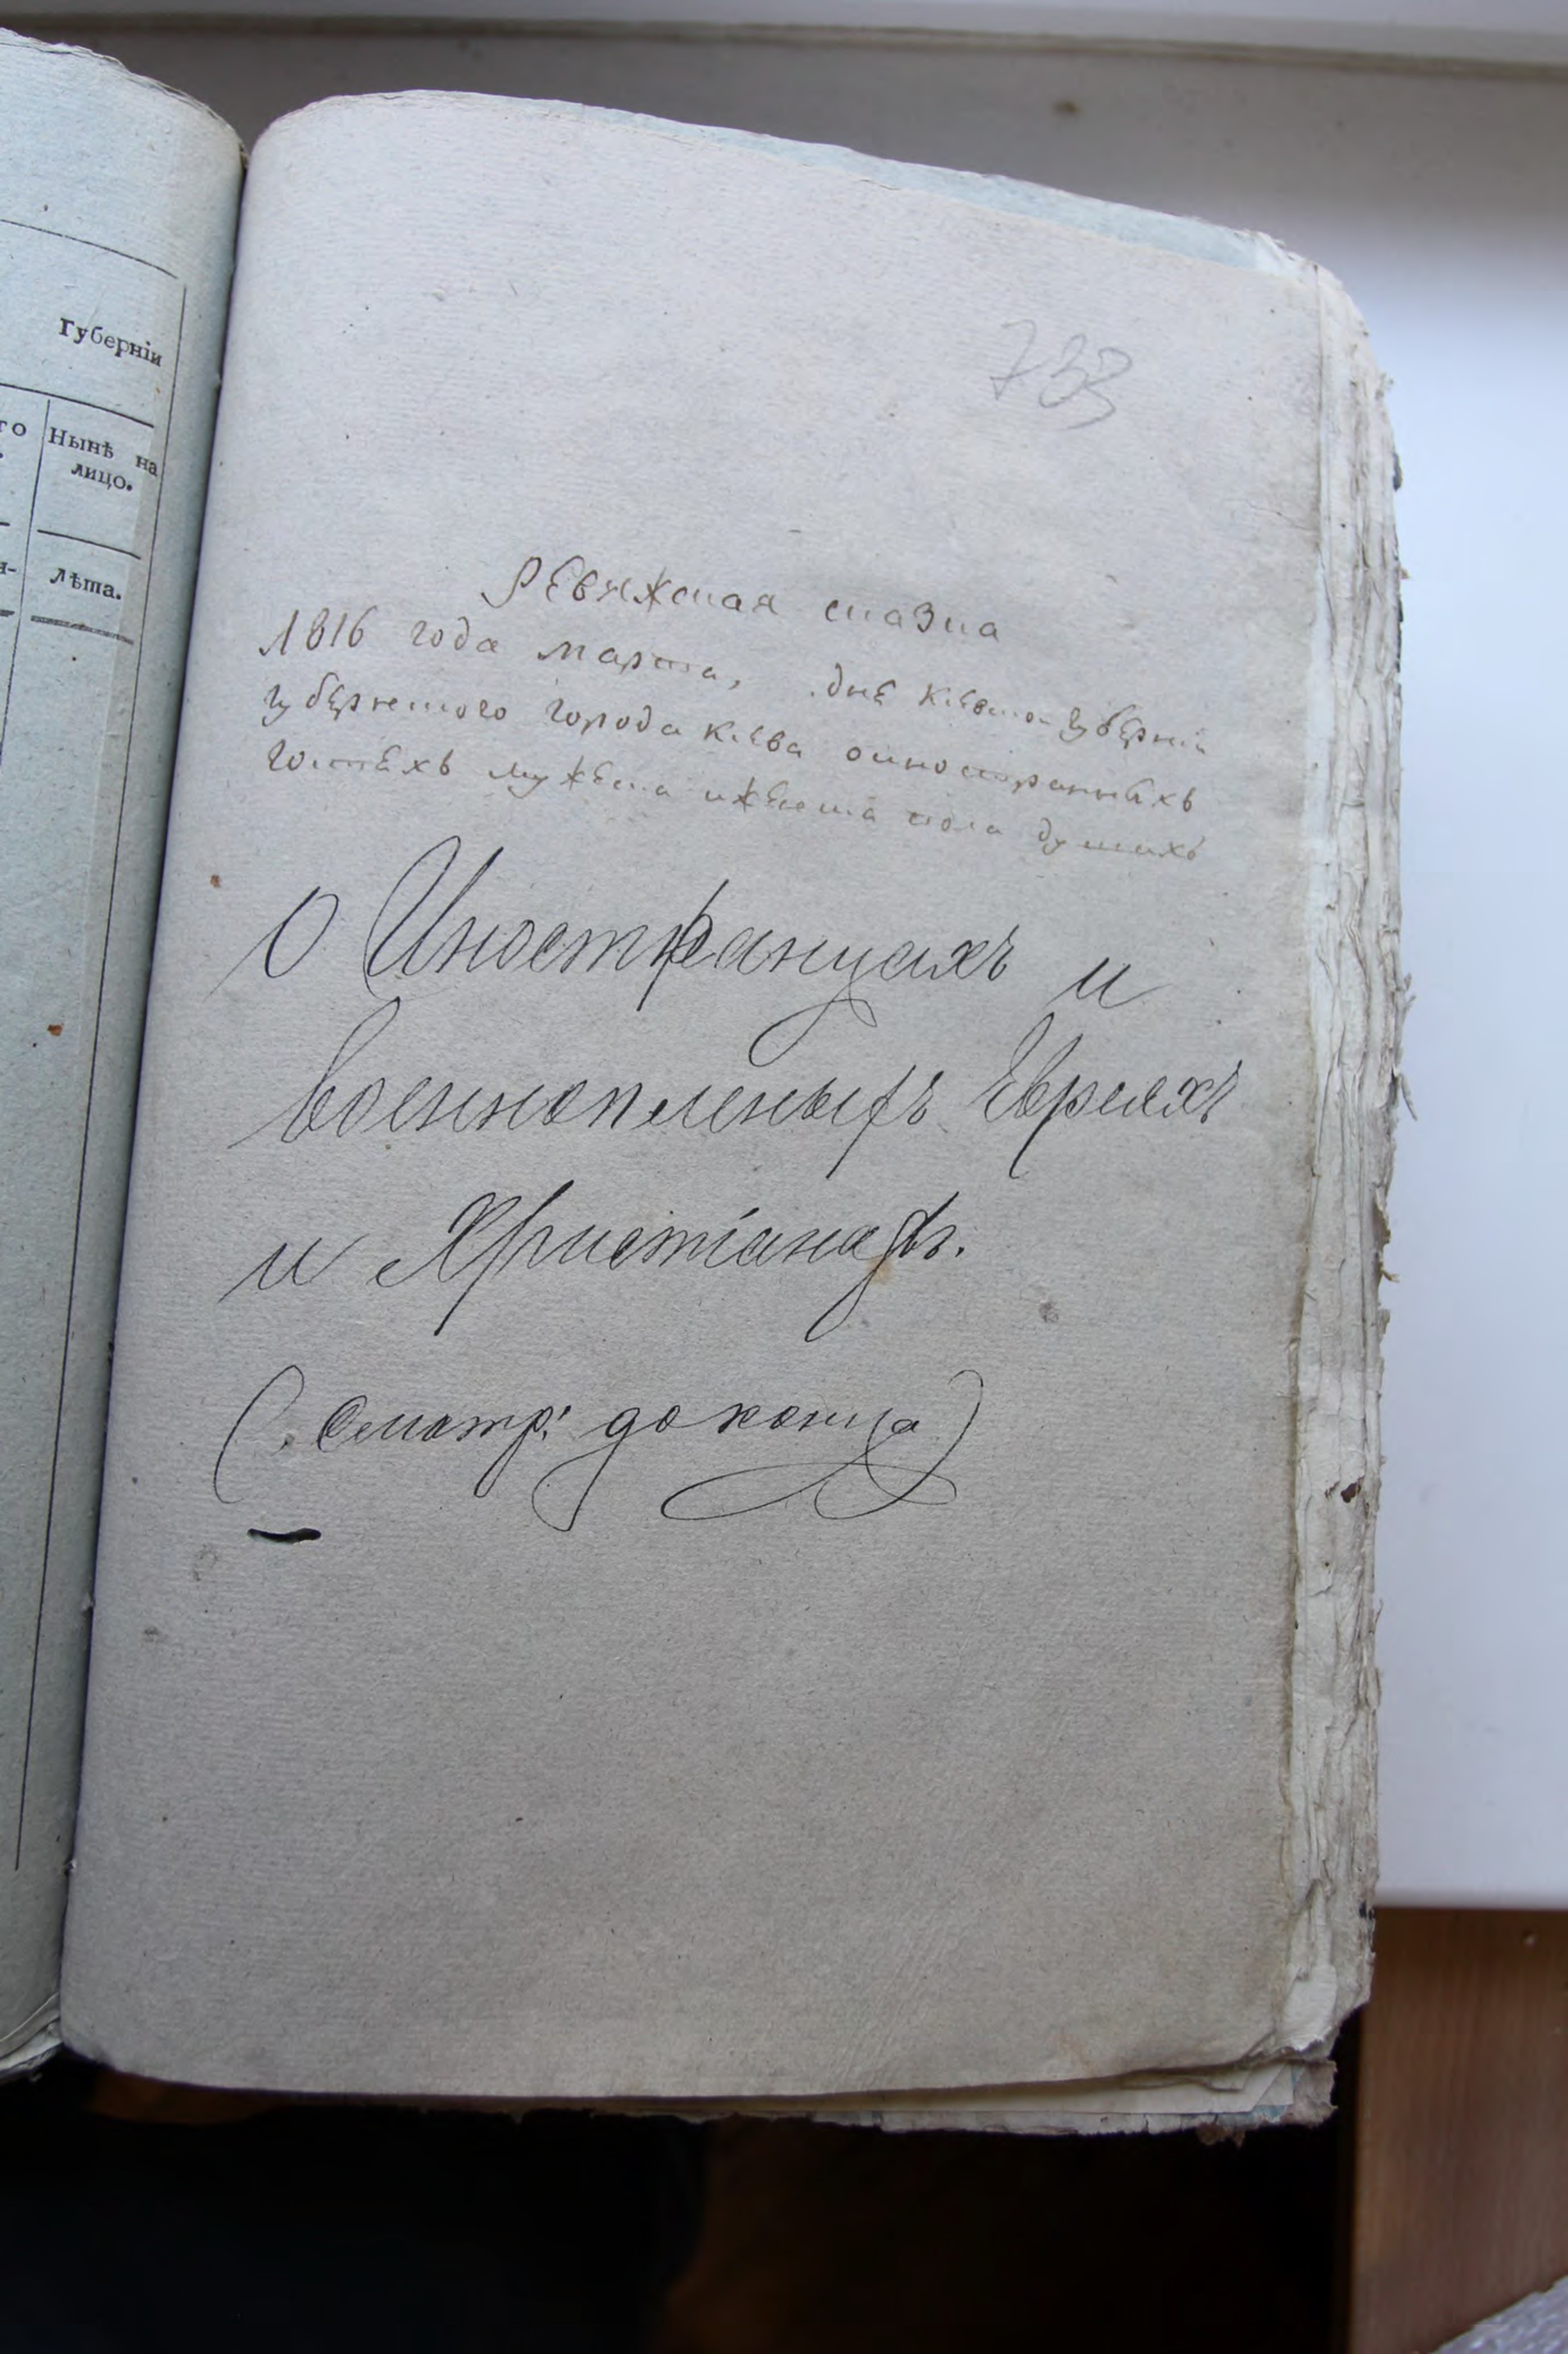 Губерніи
го
Нынѣ на
лицо.
лѣта.
733
Ревижская сказка
1816 года марта, дня Кіевской губерніи
губернского города Кіева оиностранныхъ
гостяхъ мужеска иженска пола душахъ
О Иностранцахъ и
военнопленныхъ Евреяхъ
и Христіанахъ.
(. Смотр: до конца)